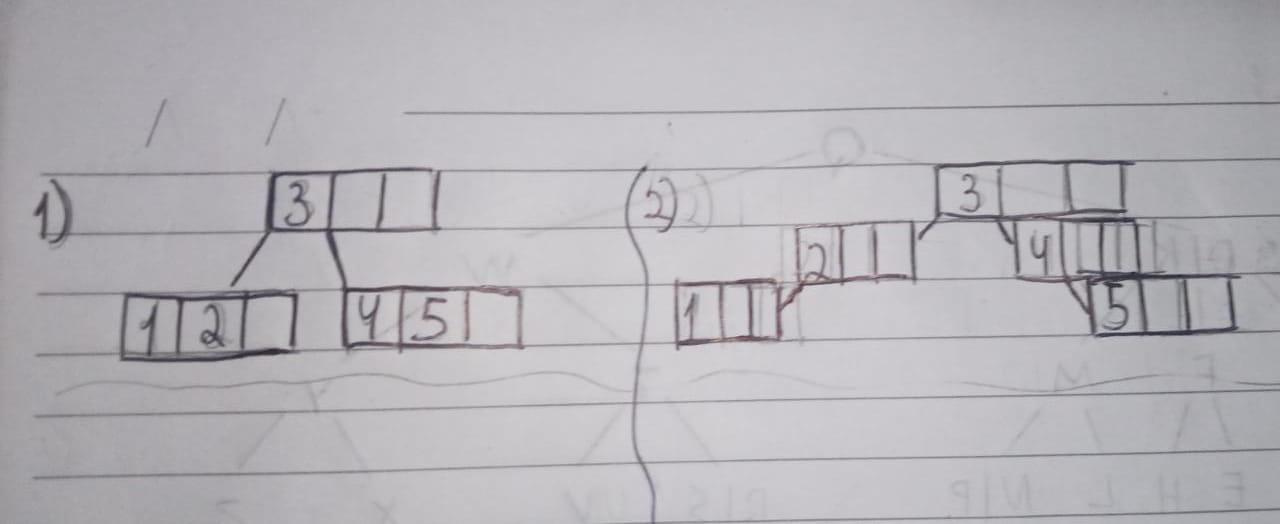 1) 3
1 2 4 5
2) 3
2 4
1 5